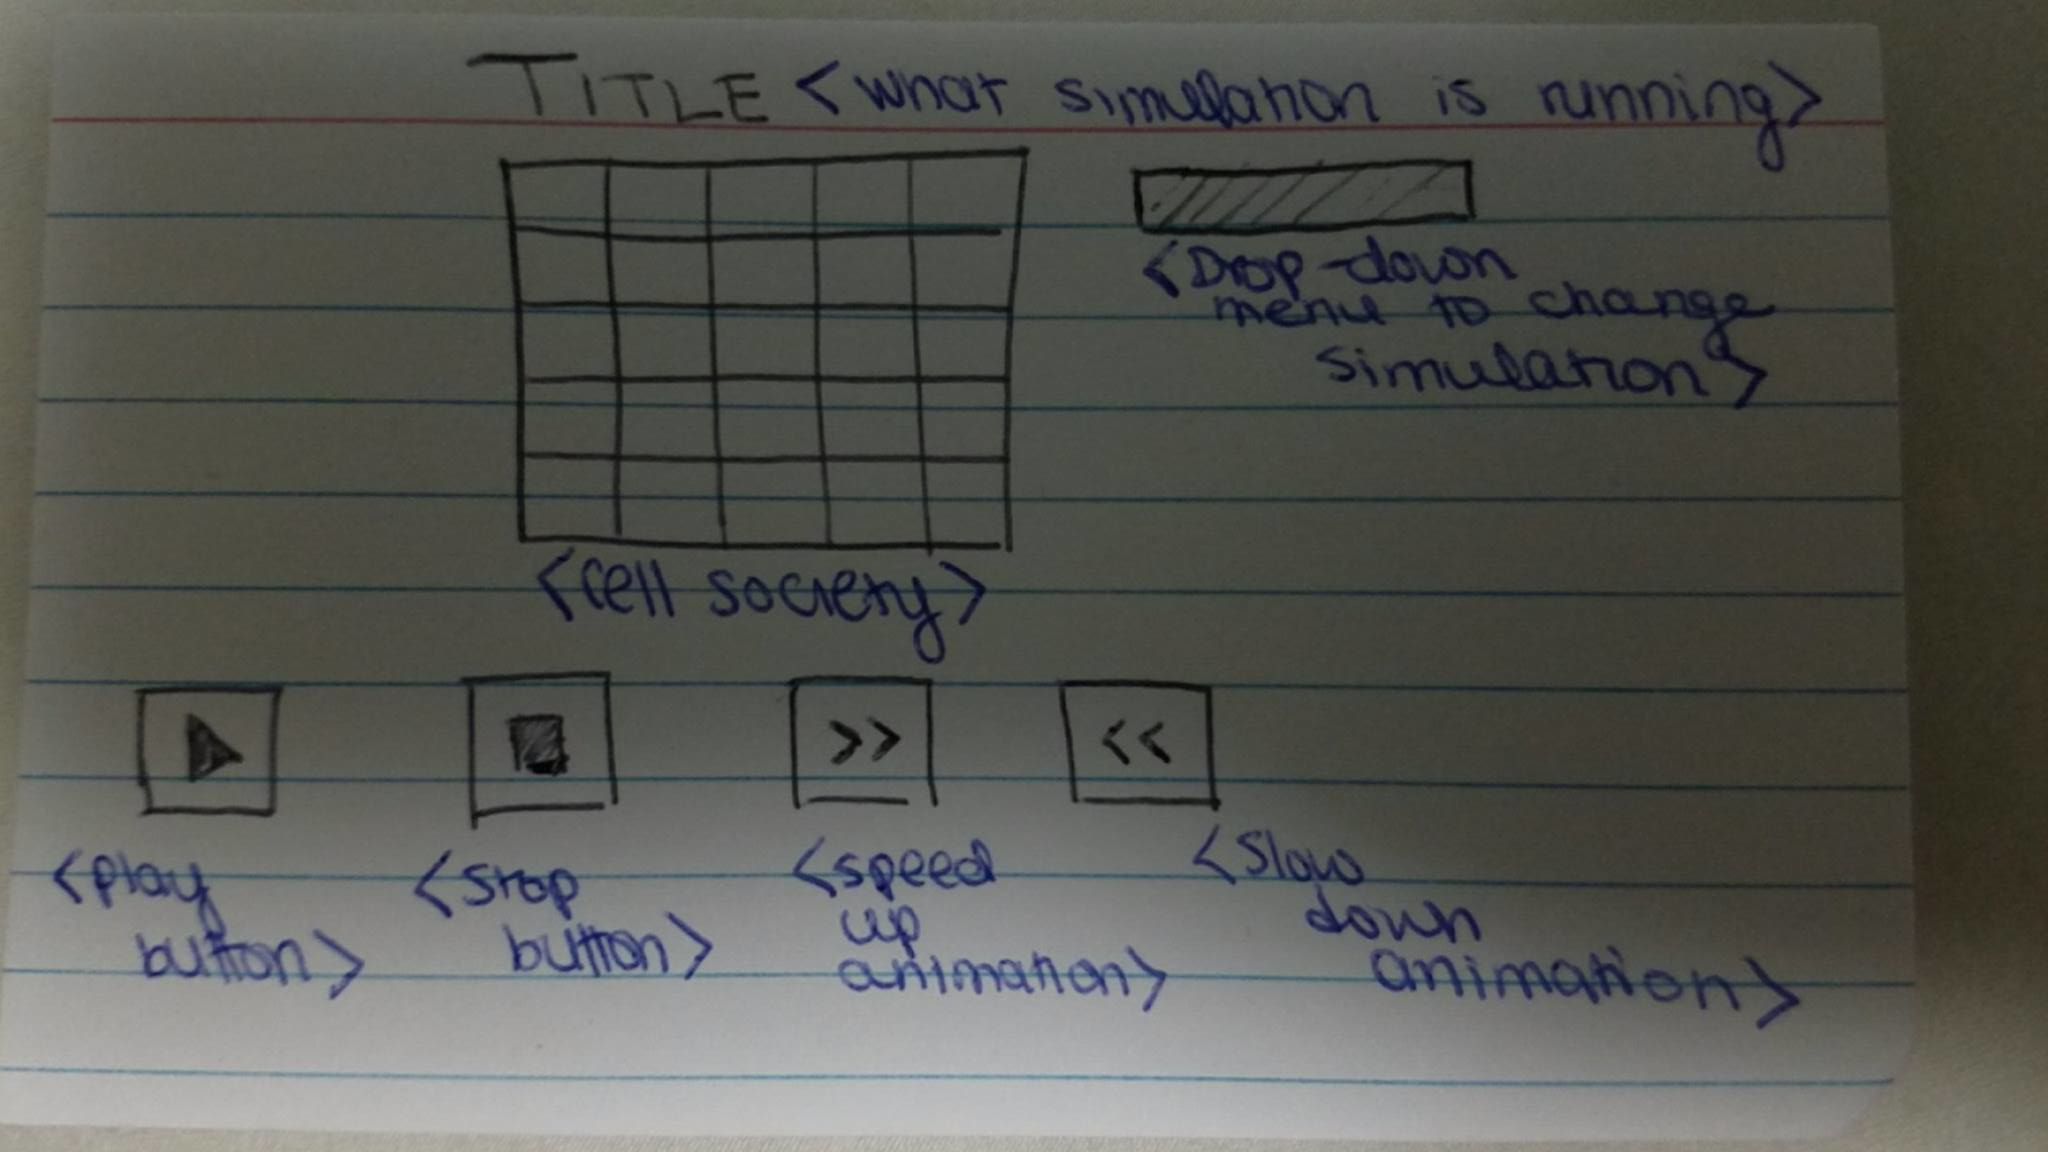 TITLE <what simulation is running>
<Drop-down
menu to change
simulation>
<cell society>
>>
<<
<play
button>
<stop
button>
<speed
up
animation>
<slow
down
animation>